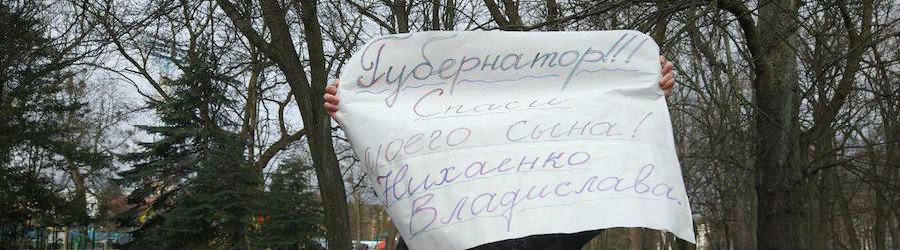 Губернатор!!!
Спаси
моего сына!
Нихаенко
Владислава.